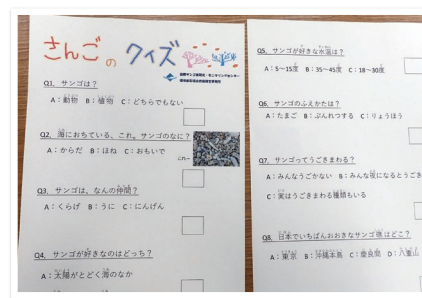 さんごのクイズ
国際サンゴ礁研究・モニタリングセンター
Q1、サンゴは？
A：動物 B：植物 C：どちらでもない
Q2、海におちている、これ。サンゴのなに？
A：からだ B：ほね C：おもいで
これ→
Q3、サンゴは、なんの仲間？
A：くらげ B：うに C：にんげん
Q4、サンゴが好きなのはどっち？
A：太陽がとどく海のなか
Q5、サンゴが好きな水温は？
A：5～15度 B：35～45度 C：18～30度
Q6、サンゴのふえかたは？
A：たまご B：ぶんれつする C：りょうほう
Q7、サンゴってうごきまわる？
A：みんなうごかない B：みんな夜になるとうごき
C：実はうごきまわる種類もいる
Q8、日本でいちばんおおきなサンゴ礁はどこ？
A：東京 B：沖縄本島 C：慶良間 D：八重山